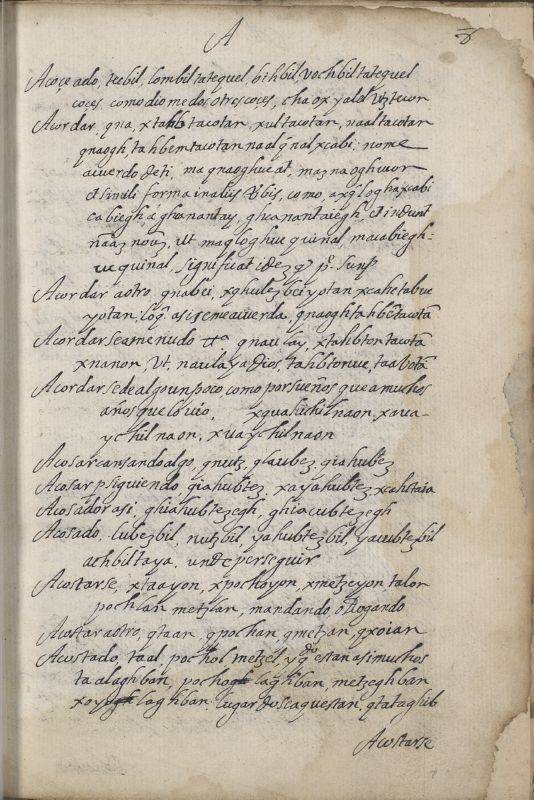 A
8
Acoçeado, tecbil, combil tatequel, bihbil, vochbil tatequel
coçes, como dio me dos otres coçes, cha ox yalel
Acordar, qna, xtahb tacotan, xul tacotan, naal tacotan
qnaogh, tahbem tacotan naal qnal xcabi: nome
acuerdo de ti, ma qnaoghucat, ma naoghuor
et simili forma in aliis verbis, como, axgloghaxcabi
cabiegh, a ghanantay, ghanantaiegh, et indunt
ut magloghuc quinal, macabiegh:
uc quinal, significat
Acordar aotro, qnabei, xqhulez bei yotan xcahetabuc
yotan, asisemeacuerda, qnaogh tahbētacotā
Acordarse amenudo qnaulay, xtahbton tacotā
xnanon, Vt, naulaya Dios, tahbtonuc, taa votā
Acordarse de algo un poco como por sueños que a muchos
años que lo vio, xquahichilnaon xaua-
ychilnaon, xuaychilnaon
Acosar cansando algo, gnutz, glaubez, giahubtez
Acosar persiguiendo giahubtez, xayahubtez, xcahetaia
Acosador asi, ghiahubtezegh, ghiacubtezegh
Acosado, lubezbil, nutzbil, yahubtezbil, yacubtezbil
achbiltaya, unde perseguir
Acostarse, xtaayon, xpochoyon, xmetzeyon talon
pochlan metzlan, mandando o Rogando
Acostar aotro, qtaan, qpochan, qmetzan, qxoian
Acostado, taal, pochol metzel, y qdo estan asi muchos
talaghban pochoghlaghban, metzeghban
xoyoghlaghban lugar do se acuestan, qtataghib
Acostarse